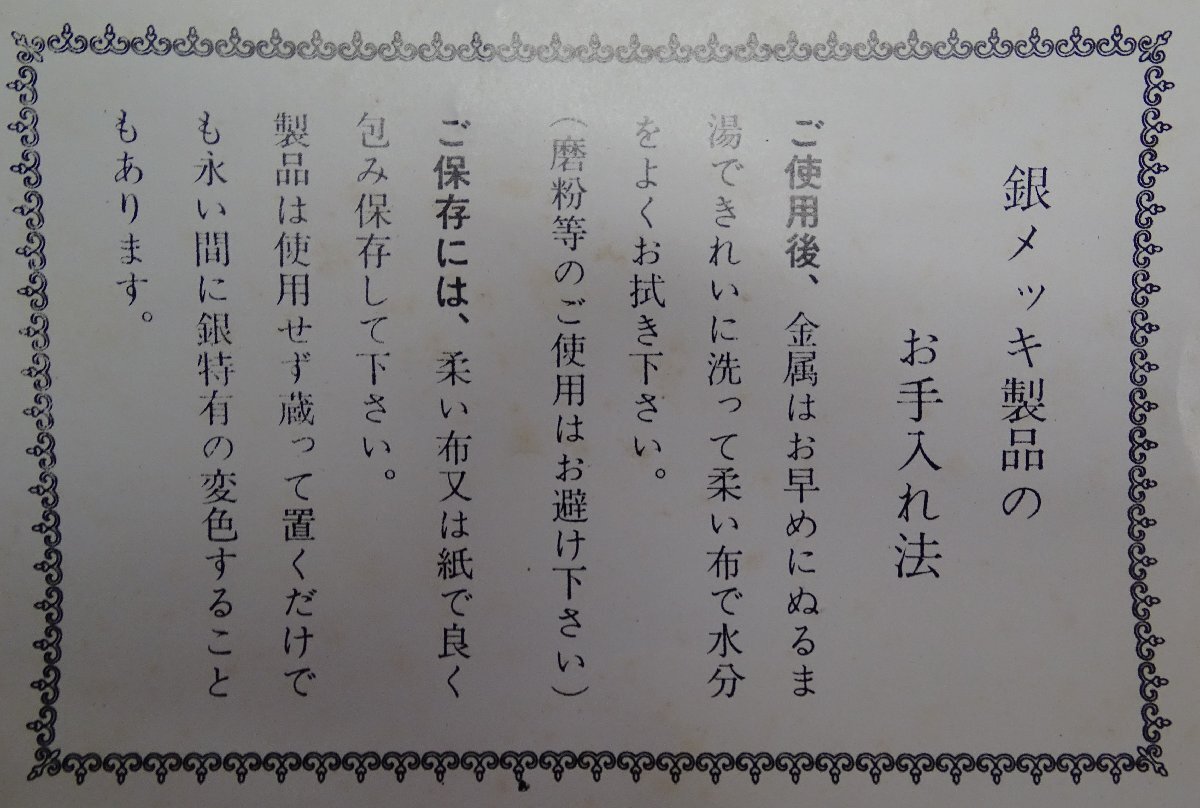 銀メッキ製品の
お手入れ法
ご使用後、金属はお早めにぬるま
湯できれいに洗って柔い布で水分
をよくお拭き下さい。
(磨粉等のご使用はお避け下さい)
ご保存には、柔い布又は紙で良く
包み保存して下さい。
製品は使用せず蔵って置くだけで
も永い間に銀特有の変色すること
もあります。